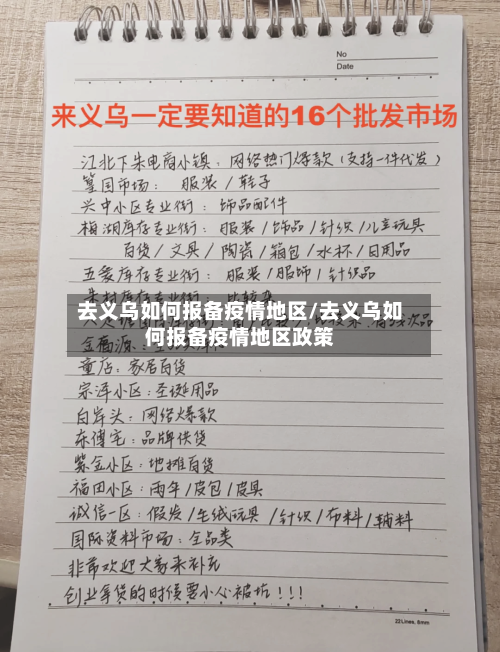 No
Date
来义乌一定要知道的16个批发市场
江北下朱电商小镇：网络热门爆款（支持一件代发）
篁园市场：服装/鞋子
兴中小区专业街：饰品配件
梅湖库存专业街：服装/饰品/针织/儿童玩具
百货/文具/陶瓷/箱包/水杯/日用品
五爱库存专业街：服装/服饰/针织品
去义乌如何报备疫情地区/去义乌如
何报备疫情地区政策
金福源：
童店：家居百货
宗泽小区：圣诞用品
白岸头：网络爆款
东傅宅：品牌供货
紫金小区：地摊百货
福田小区：雨伞/皮包/皮具
诚信一区：假发/毛绒玩具/针织/布料/辅料
国际资料市场：全品类
非常欢迎大家来补充
创业拿货的时候要小心被坑！！！
22Lines, 8mm